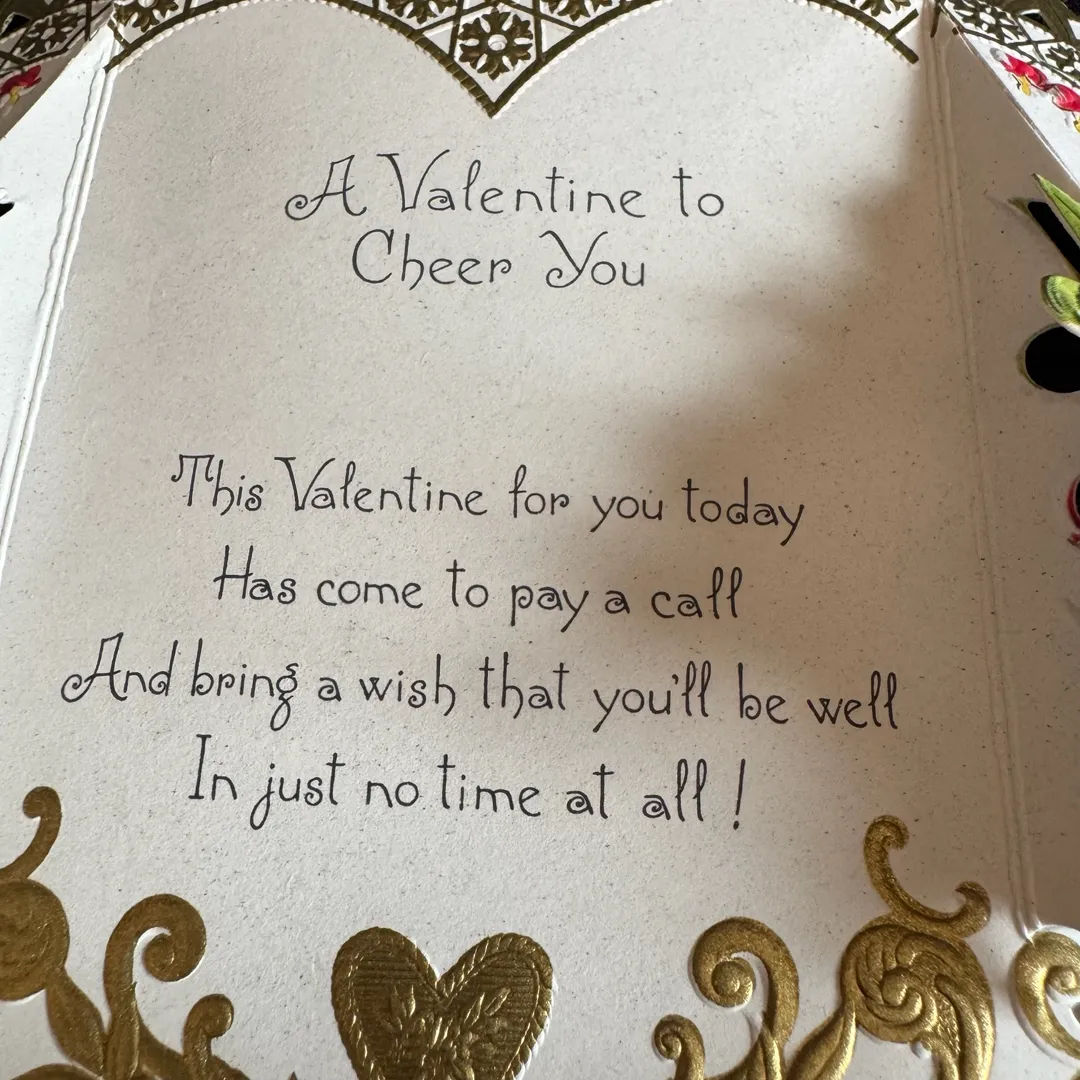 A Valentine to
Cheer You
This Valentine for you today
Has come to pay a call
And bring a wish that you'll be well
In just no time at all !